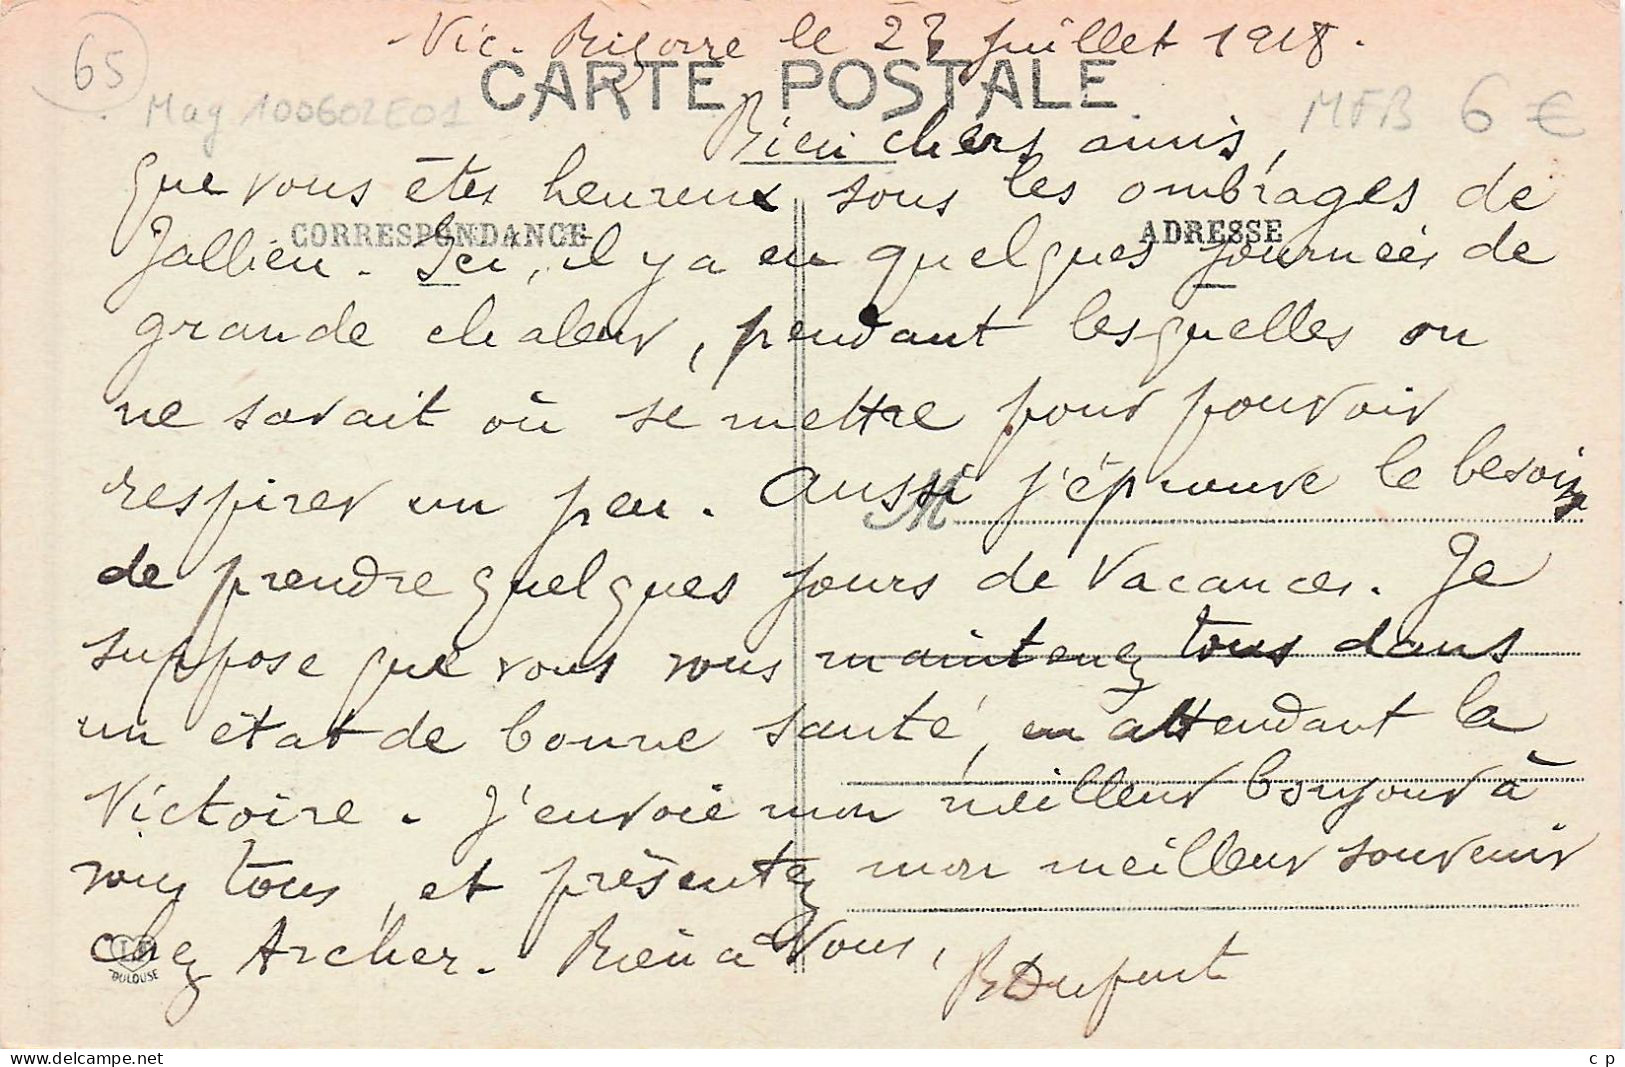 Vic-Bigorre le 23 juillet 1918.
65
CARTE POSTALE
Mag 100602E01
MFB 6 €
Bien chers amis,
Que vous êtes heureux sous les ombrages de
CORRESPONDANCE
ADRESSE
Jallieu. Ici, il y a eu quelques journées de
grande chaleur, pendant lesquelles on
ne savait où se mettre pour pouvoir
respirer un peu. Aussi j'éprouve le besoin
M
de prendre quelques jours de vacances. Je
suppose que vous vous maintenez tous dans
un état de bonne santé, en attendant la
Victoire. J'envoie mon meilleur bonjour à
vous tous, et présentez mon meilleur souvenir
chez Archer. Bien à Vous,
TOULOUSE